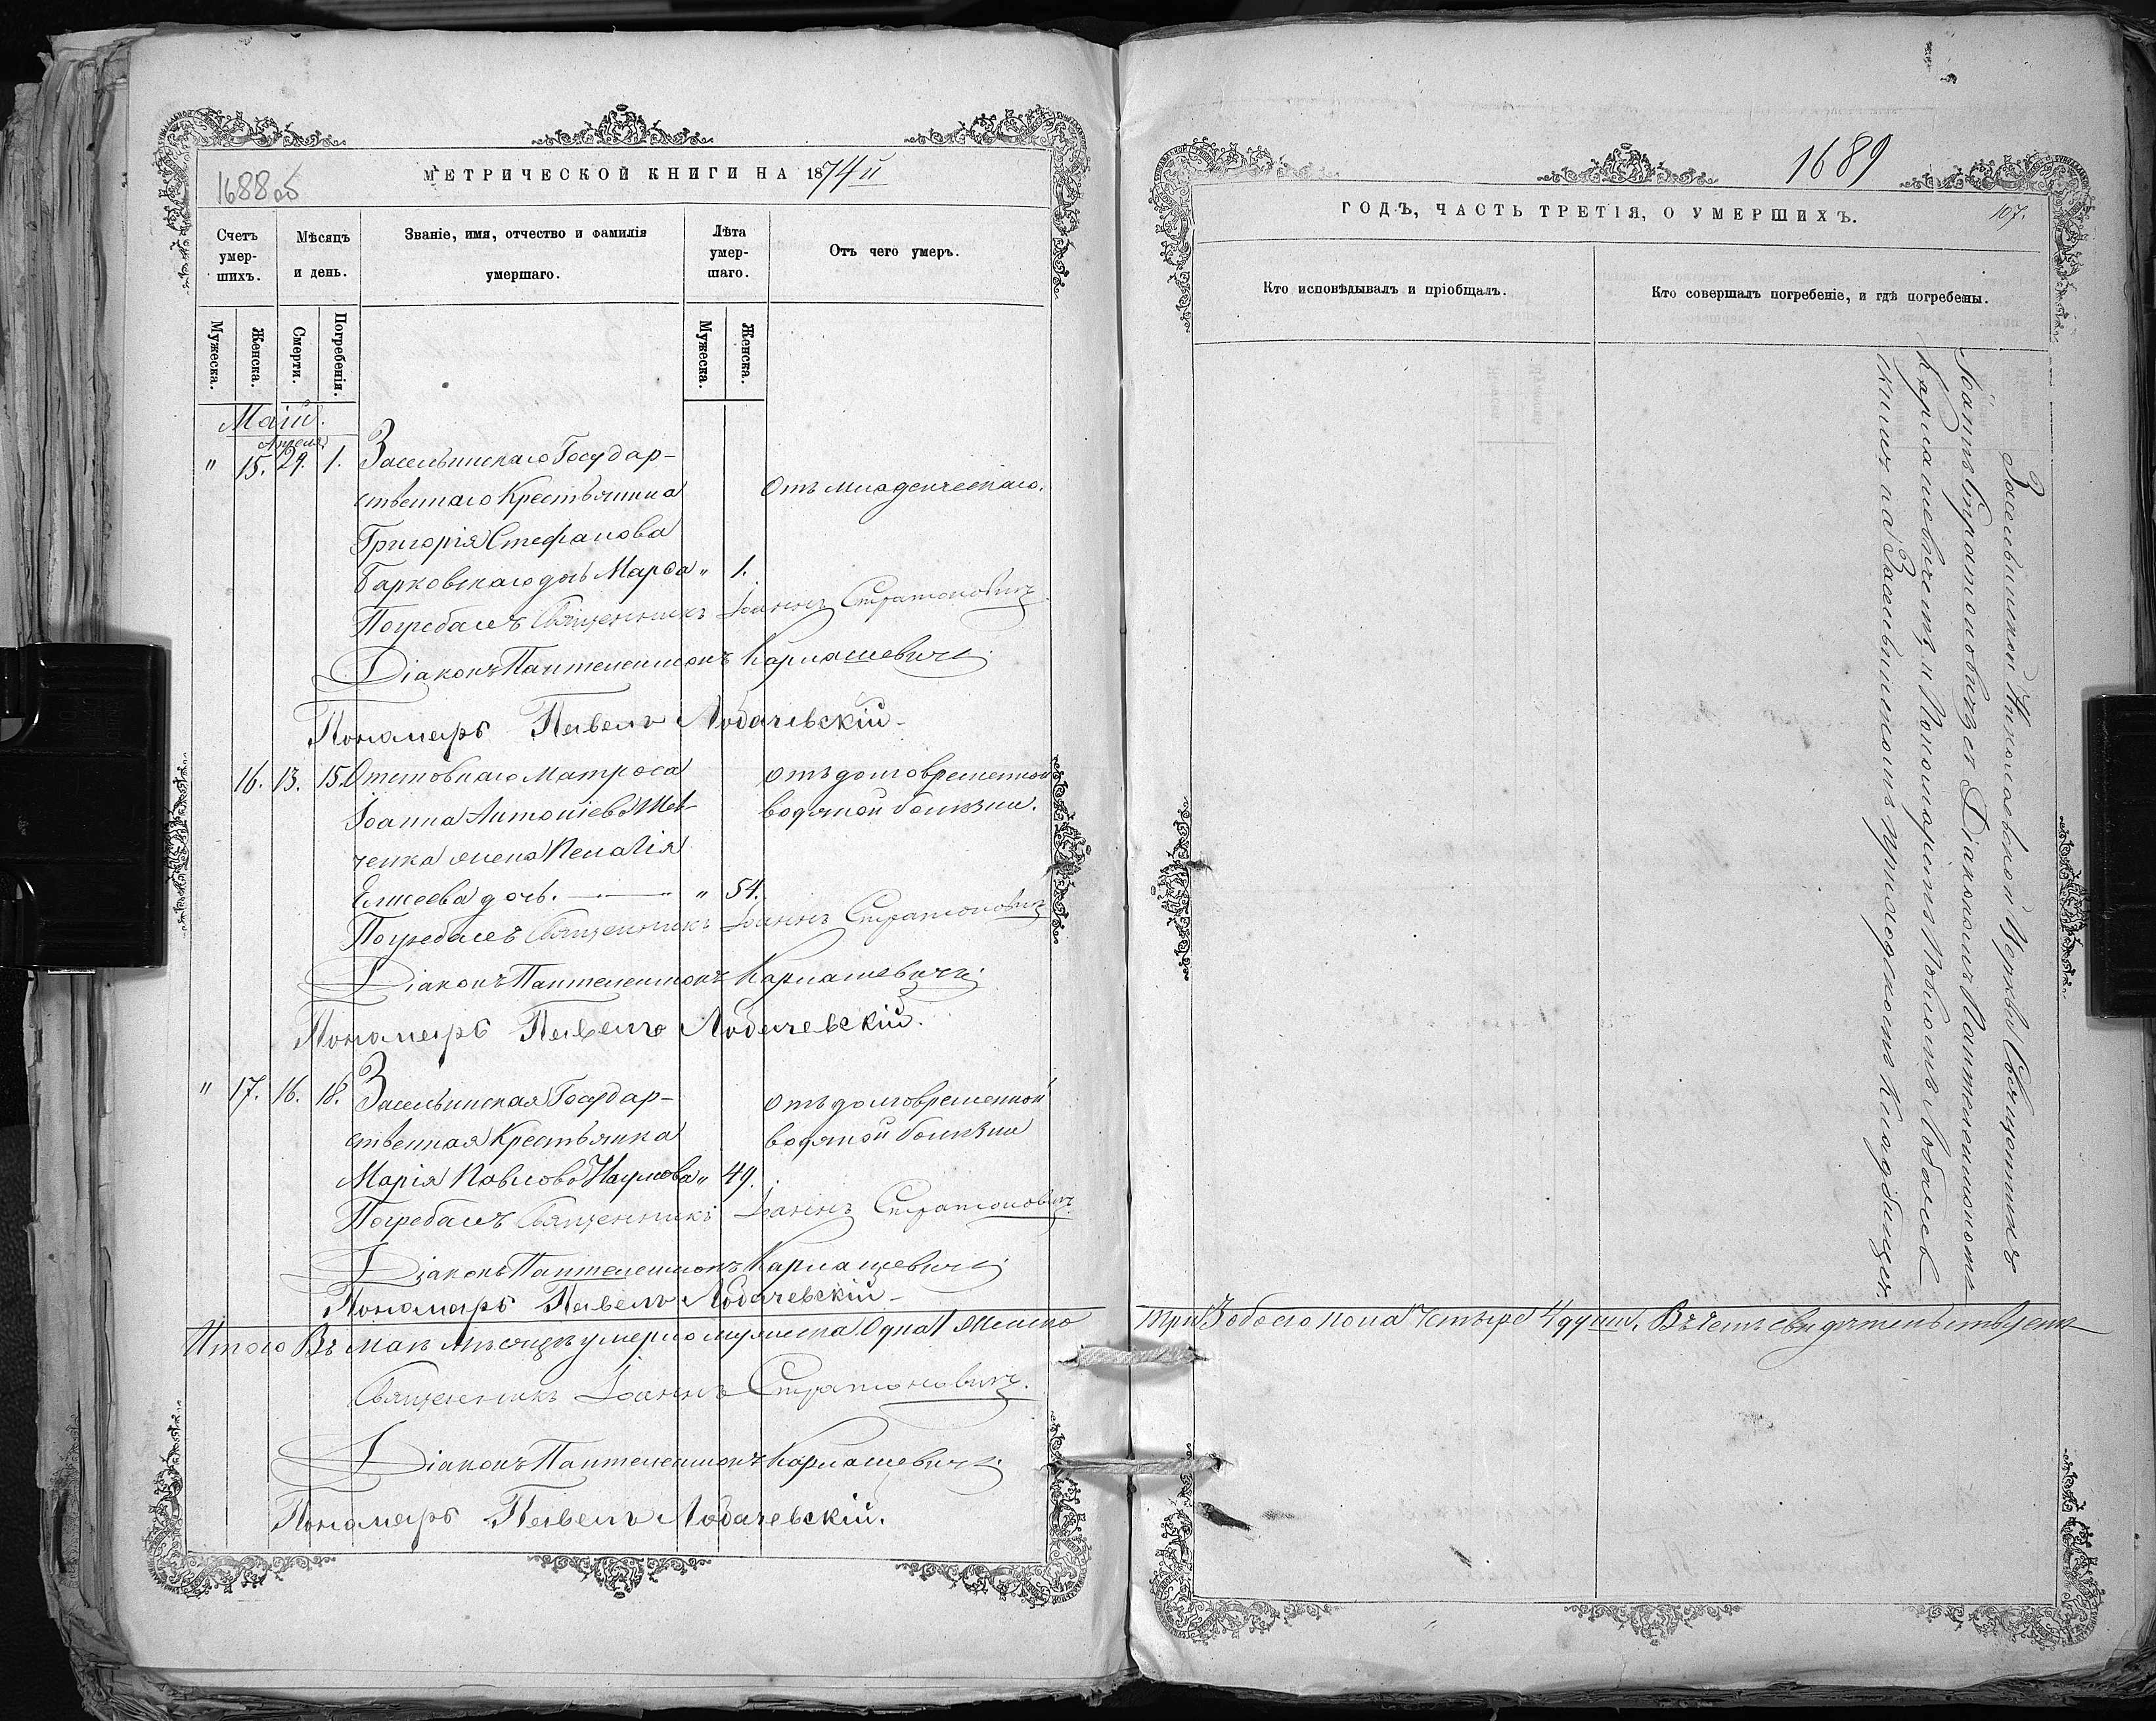 1688об
МЕТРИЧЕСКОЙ КНИГИ НА 1874й
Счетъ умер-шихъ.
Мѣсяцъ и день.
Званіе, имя, отчество и фамилія умершаго.
Лѣта умер-шаго.
Отъ чего умеръ.
Мужеска.
Женска.
Смерти.
Погребенія.
Мужеска.
Женска.
Маій.
Апреля
" 15. 29. 1. Засельшинскаго Государ-
ственнаго Крестьянина Отъ младенческаго.
Григорія Стефанова
Барковскаго дочь Марѳа " 1.
Погребалъ Священникъ Іоаннъ Стратоновичъ
Діаконъ Пантелеимонъ Карпашевичъ
Пономарь Павелъ Лобачевскій
16. 13. 15. Отставнаго Матроса отъ долговременной
Іоанна Антоніева Шев- водяной болѣзни.
ченка жена Пелагія
Елисеева дочь. " 54.
Погребалъ Священникъ Іоаннъ Стратоновичъ
Діаконъ Пантелеимонъ Карпашевичъ
Пономарь Павелъ Лобачевскій.
" 17. 16. 18. Засельшинская Государ- отъ долговременной
ственная Крестьянка водяной болѣзни
Марія Павлова Наумова " 49.
Погребалъ Священникъ Іоаннъ Стратоновичъ
Діаконъ Пантелеимонъ Карпашевичъ
Пономарь Павелъ Лобачевскій
Итого Въ маѣ мѣсяцѣ умерло мужеска Одна 1 Женско
Священникъ Іоаннъ Стратоновичъ.
Діаконъ Пантелеимонъ Карпашевичъ
Пономарь Павелъ Лобачевскій.
1689
ГОДЪ, ЧАСТЬ ТРЕТІЯ, О УМЕРШИХЪ.
107.
Кто исповѣдывалъ и пріобщалъ.
Кто совершалъ погребеніе, и гдѣ погребены.
Николаевской Церкви Священникъ
Іоаннъ Стратоновичъ съ Діакономъ Пантелеимономъ
Карпашевичемъ и Пономаремъ Павломъ Лобачев
скимъ на приходскомъ Кладбищѣ
три 3 обоего пола Четыре 4 души. Въ чемъ свидѣтельствуемъ